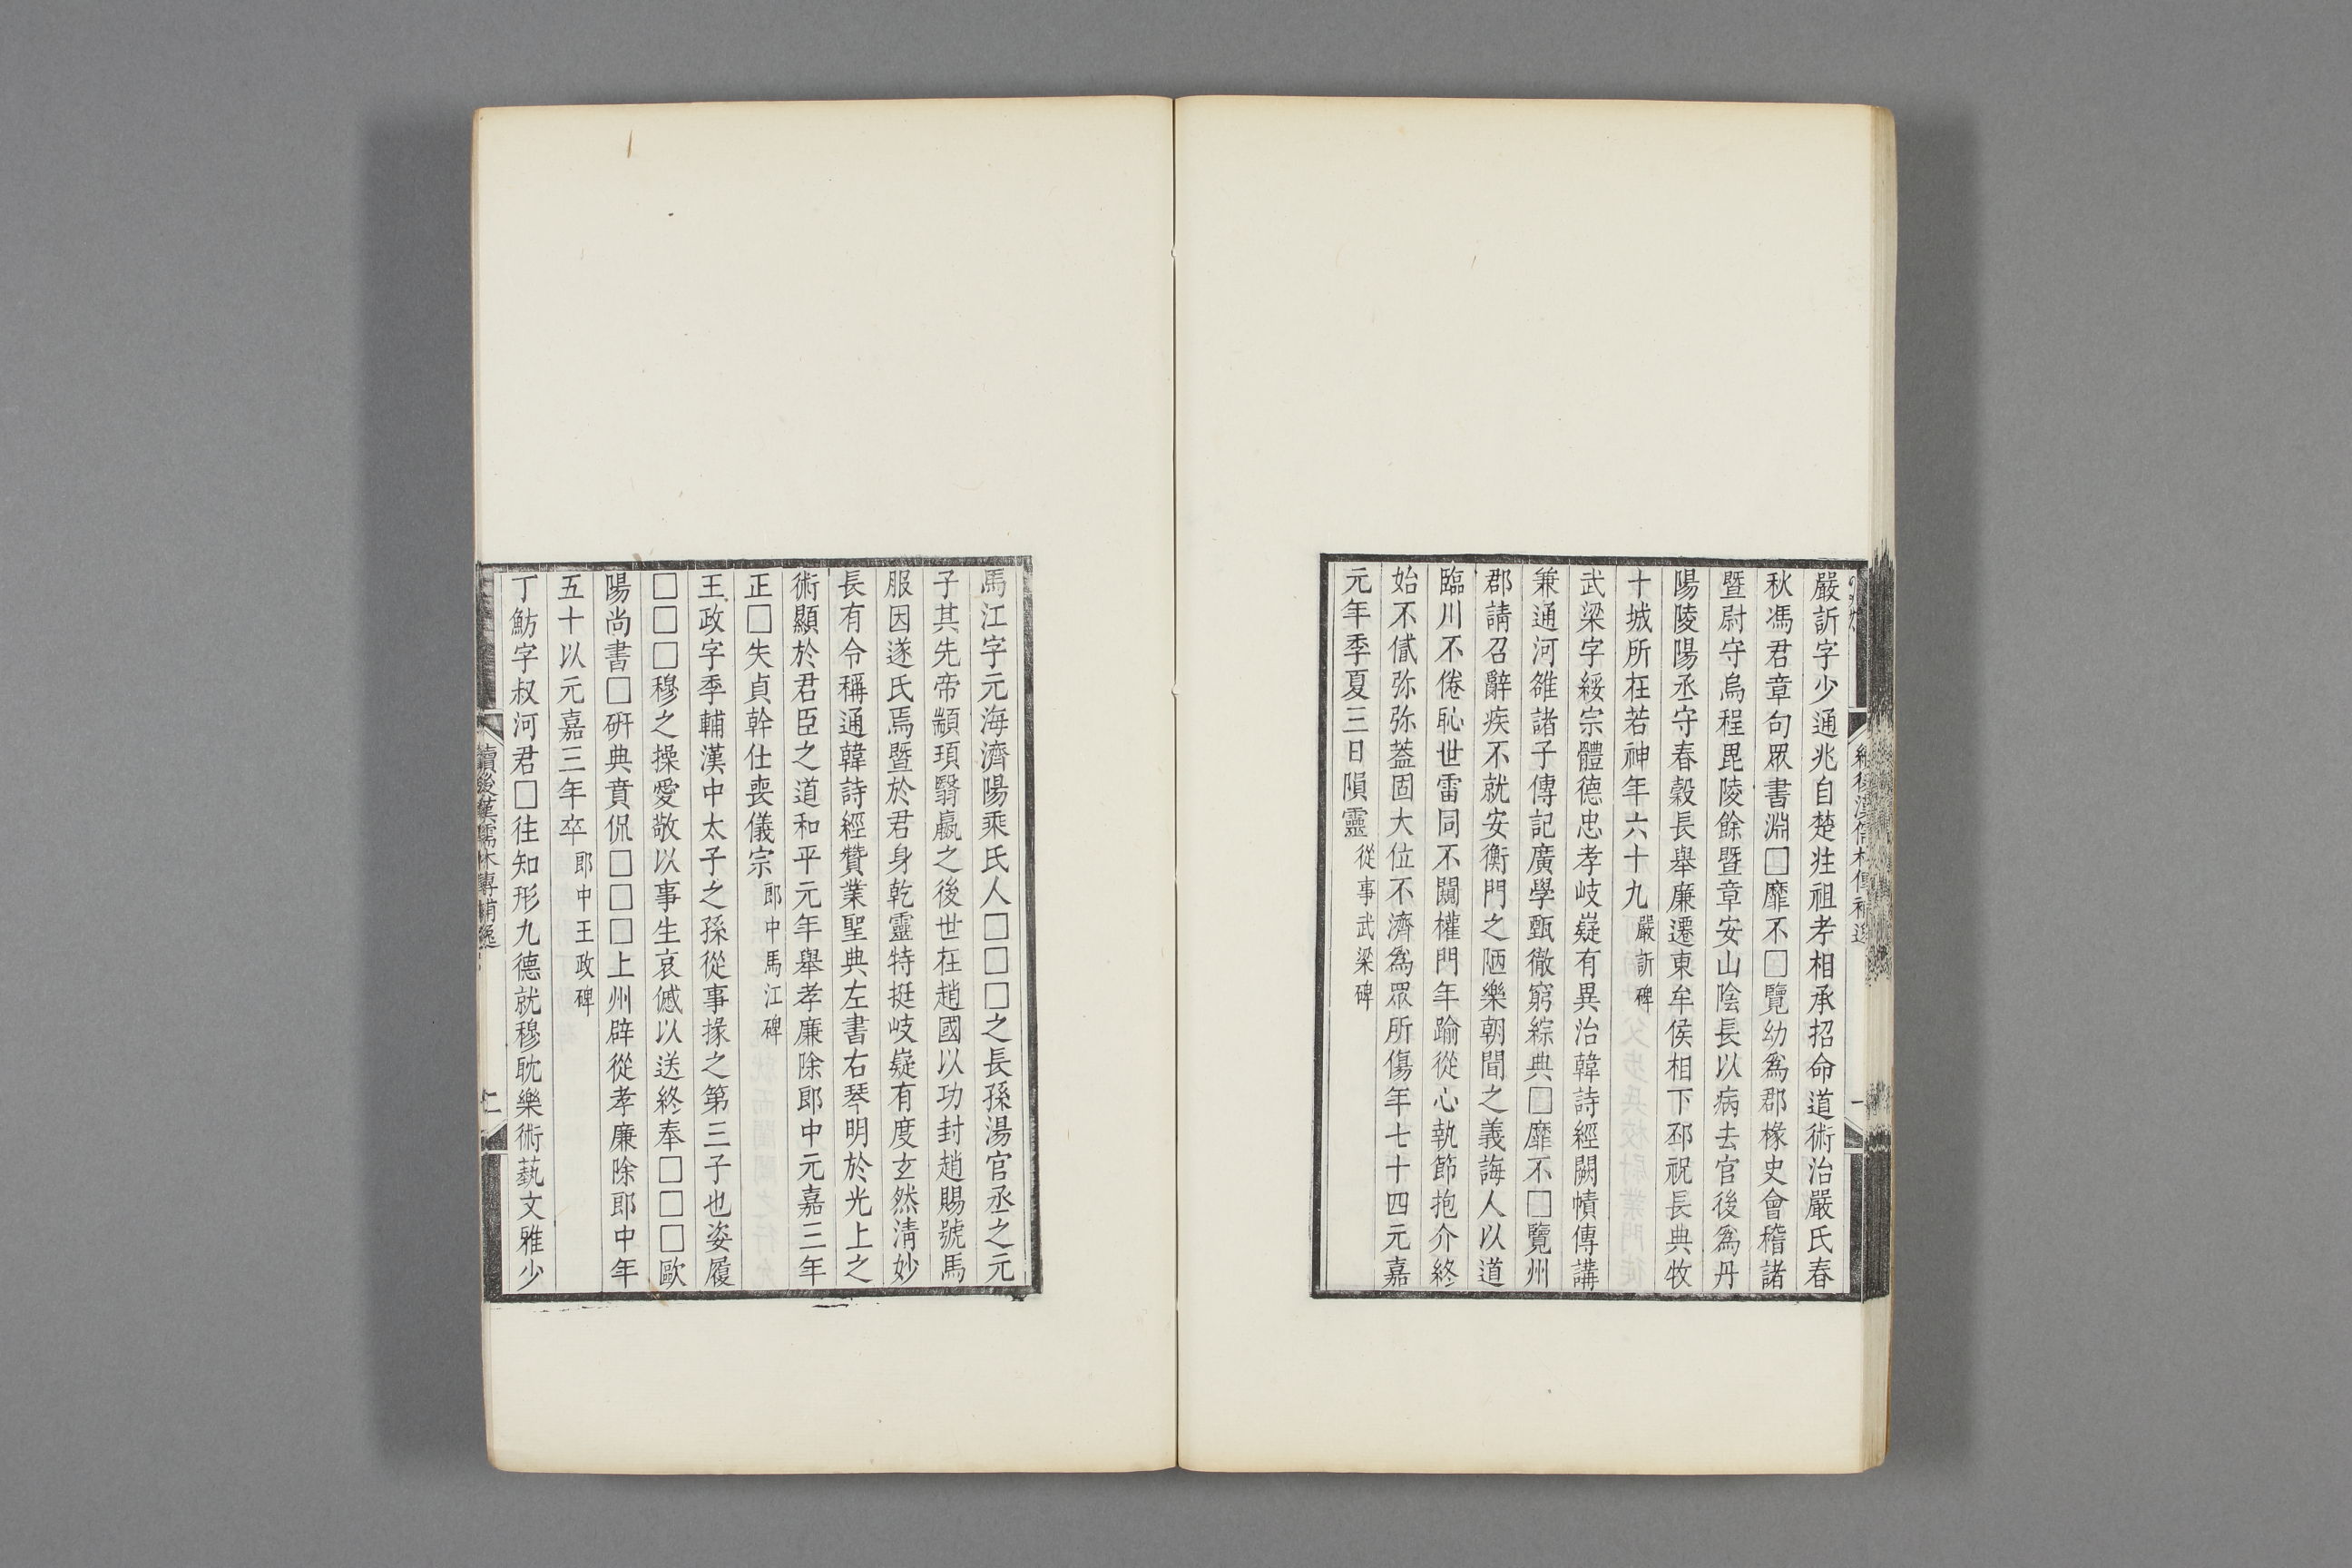 嚴訢字少通兆自楚壯祖考相承招命道術治嚴氏春
秋馮君章句眾書淵□靡不□覽幼為郡椽史會稽諸
暨尉守烏程毘陵餘暨章安山陰長以病去官後為丹
陽陵陽丞守春穀長舉廉遷東牟侯相下邳祝長典牧
十城所在若神年六十九嚴訢碑
武梁字綏宗體德忠孝岐嶷有異治韓詩經闕幘傳講
兼通河雒諸子傳記廣學甄徹窮綜典□靡不□覽州
郡請召辭疾不就安衡門之陋樂朝間之義誨人以道
臨川不倦恥世雷同不闚權門年踰從心執節抱介終
始不貳弥弥蓋固大位不濟為眾所傷年七十四元嘉
元年季夏三日隕靈從事武梁碑
馬江字元海濟陽乘氏人□□□之長孫湯官丞之元
子其先帝顓頊翳嬴之後世在趙國以功封趙賜號馬
服因遂氏焉暨於君身乾靈特挺岐嶷有度玄然淸妙
長有令稱通韓詩經贊業聖典左書右琴明於光上之
術顯於君臣之道和平元年舉孝廉除郎中元嘉三年
正□失貞幹仕喪儀宗郎中馬江碑
王政字季輔漢中太子之孫從事掾之第三子也姿履
□□□穆之操愛敬以事生哀慽以送終奉□□□歐
陽尚書□硏典賁侃□□□上州辟從孝廉除郎中年
五十以元嘉三年卒郎中王政碑
丁魴字叔河君□往知形九德就穆耽樂術藝文雅少
續後漢儒林傳補逸
二